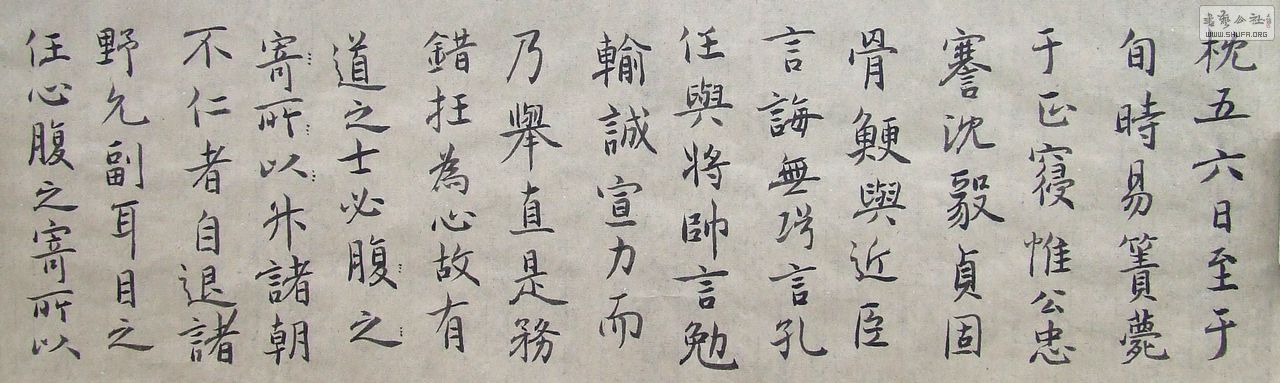 枕五六日至于
旬時易簀薨
于正寢惟公忠
謇沈毅貞固
骨鯁與近臣
言誨無
言孔
任與將帥言勉
輸誠宣力而
乃舉直是務
錯枉為心故有
道之士必腹之
寄所以升諸朝
不仁者自退諸
野允副耳目之
任心腹之寄所以
書藝公社
WWW.SHUFA.ORG